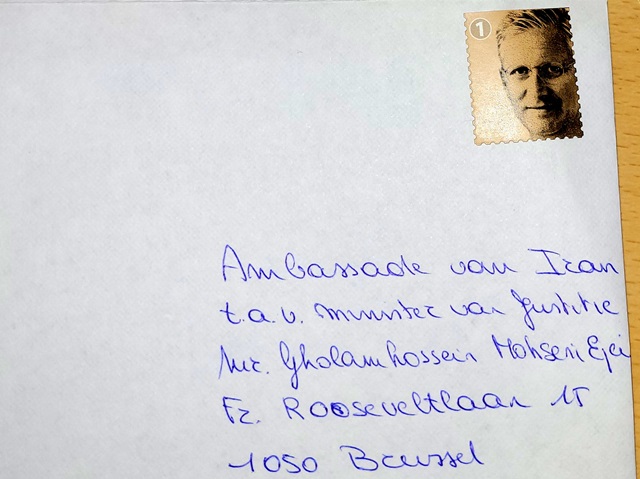 1
Ambassade van Iran
t.a.v. minister van Justitie
Mr. Gholamhossein Mohseni Ejei
Fr. Rooseveltlaan 15
1050 Brussel